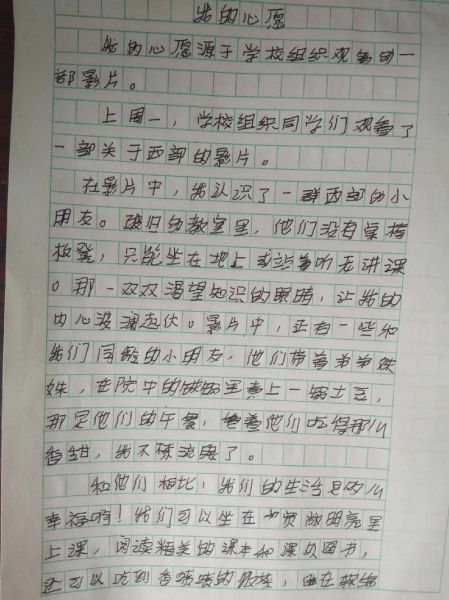 我的心愿
我的心愿源于学校组织观看的一
部影片。
上周一，学校组织同学们观看了
一部关于西部的影片。
在影片中，我认识了一群西部的小
朋友。破旧的教室里，他们没有桌椅
板凳，只能坐在地上或站着听老讲课
。那一双双渴望知识的眼睛，让我的
内心波澜起伏。影片中，还有一些和
我们同龄的小朋友，他们带着弟弟妹
妹，在院中的铁锅里煮上一锅土豆，
那是他们的午餐，看着他们吃得那么
香甜，我不禁流泪了。
和他们相比，我们的生活是多么
幸福啊！我们可以坐在宽敞明亮里
上课，阅读精美的课本和课外图书，
还可以吃到香喷喷的饭菜，